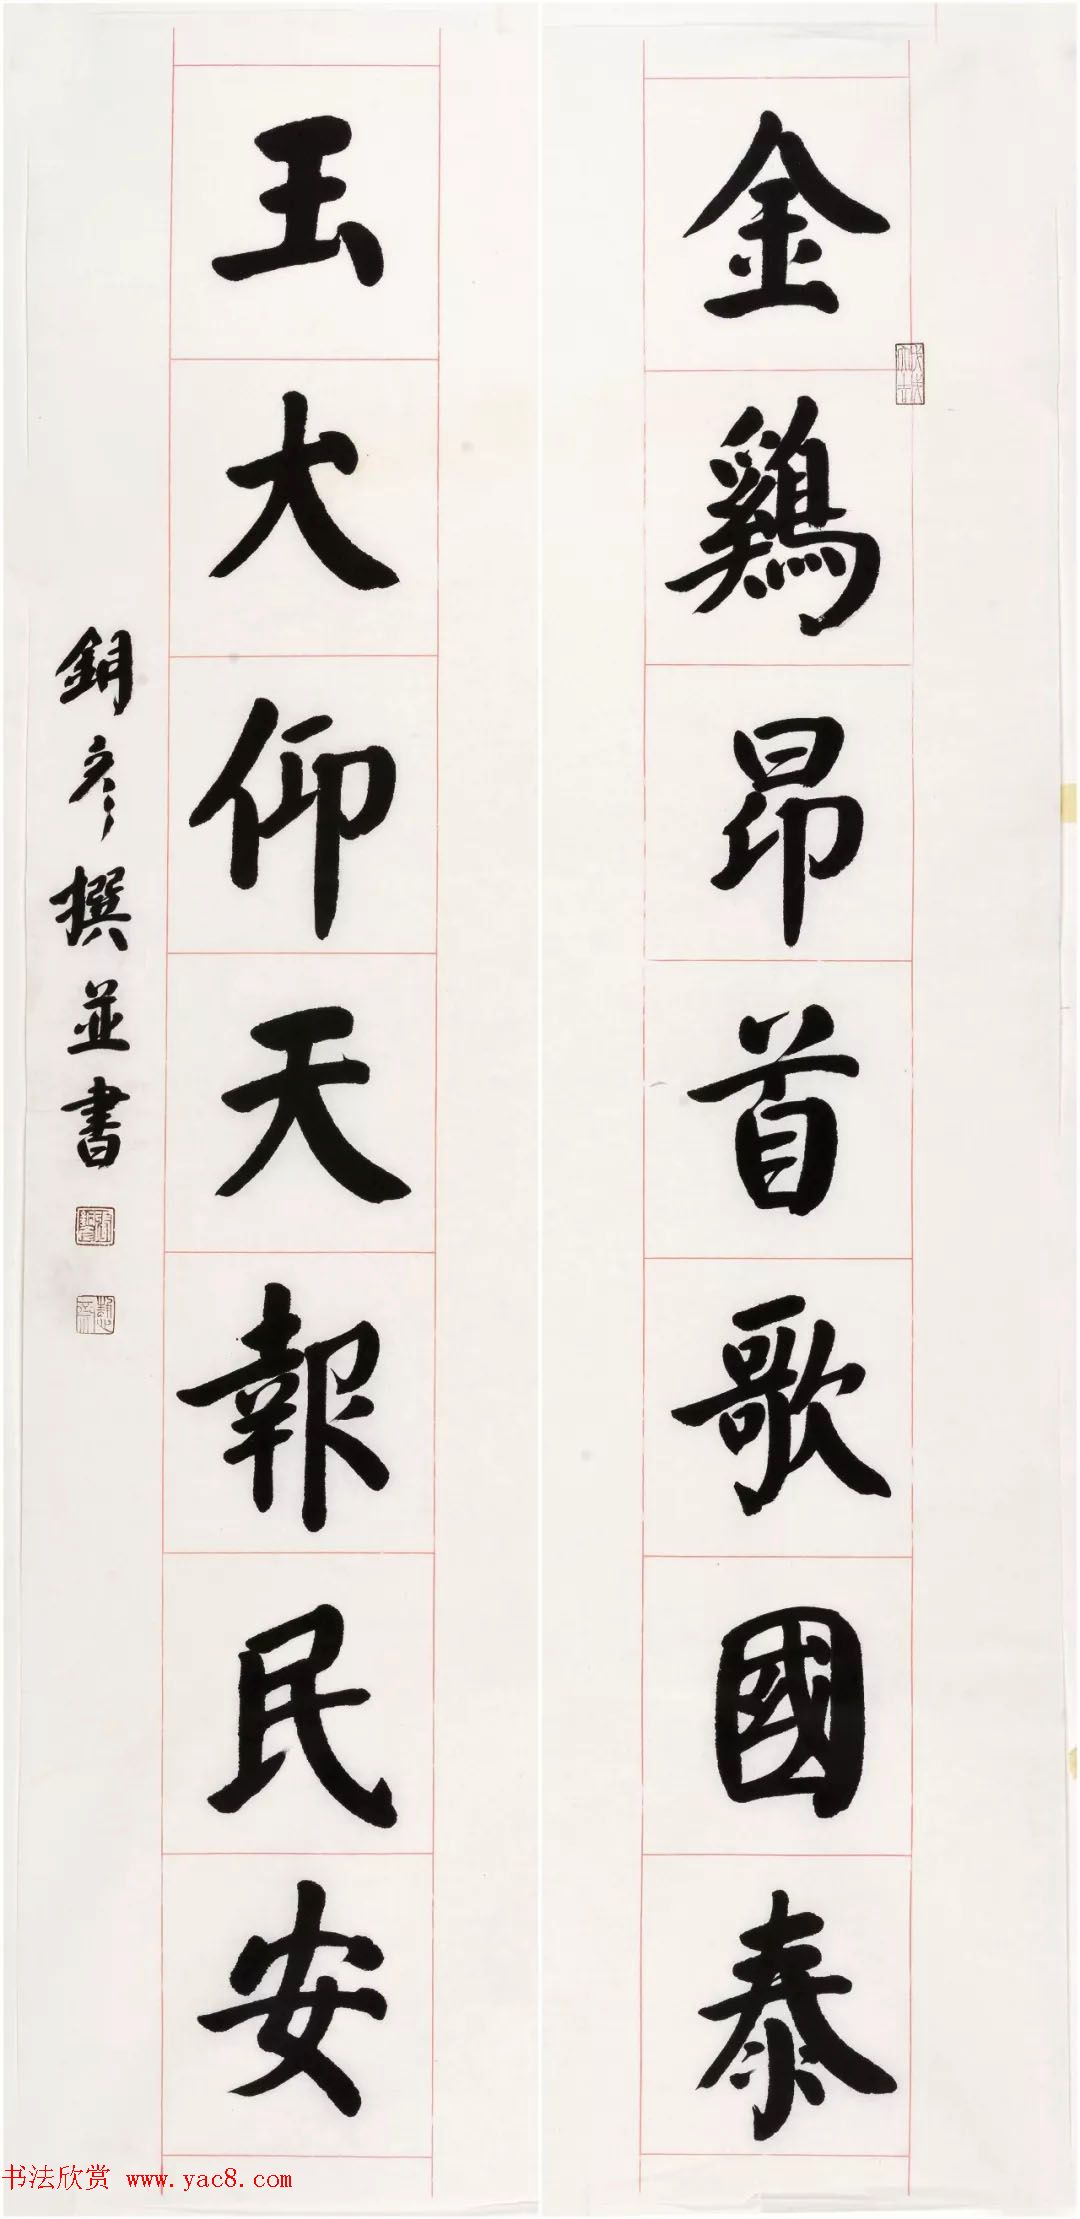 金鷄昂首歌國泰
玉犬仰天報民安
銅彦撰並書
书法欣赏 www.yac8.com